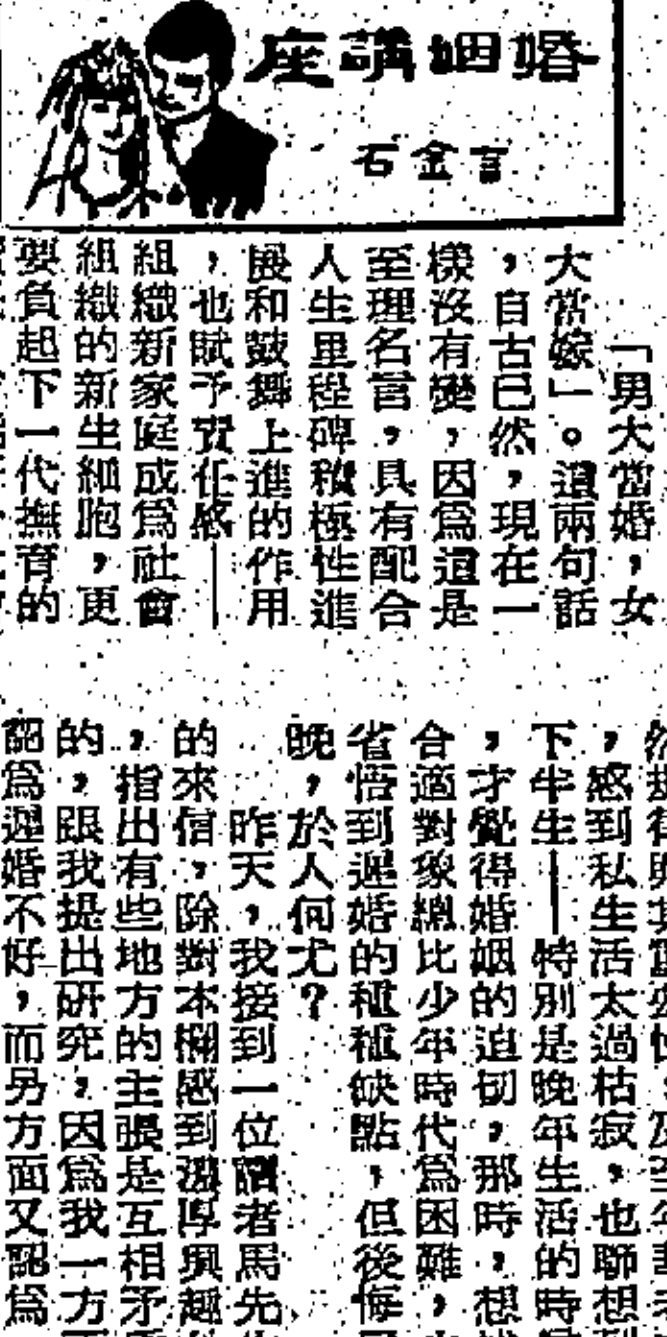 婚姻講座
石金言
「男大當婚,女
大當嫁」。這兩句話
,自古已然,現在一
樣沒有變,因爲這是
至理名言,具有配合
人生里程碑積極性進
展和鼓舞上進的作用
,也賦予責任感——
組織新家庭成爲社會
組織的新生細胞,更
要負起下一代撫育的
,感到私生活太過枯寂,也聯想
下半生——特別是晚年生活的時
,才覺得婚姻的迫切,那時,想
合適對象總比少年時代爲困難,
省悟到遲婚的種種缺點,但後悔
晚,於人何尤?
昨天,我接到一位讀者馬先
的來信,除對本欄感到濃厚興趣
,指出有些地方的主張是互相矛
的,跟我提出研究,因爲我一方
認爲遲婚不好,而另方面又認爲